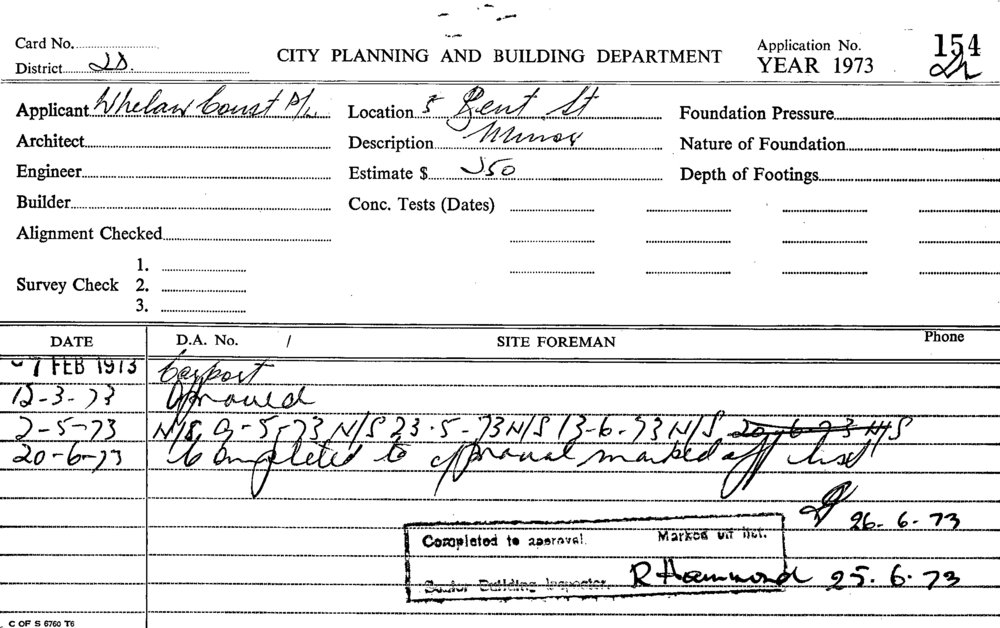 Card No.
District 2D.
CITY PLANNING AND BUILDING DEPARTMENT
Application No. 154
YEAR 1973
Applicant Whelan Const P/L
Location 5 Bent St
Foundation Pressure
Architect
Description Minor
Nature of Foundation
Engineer
Estimate $ 250
Depth of Footings
Builder
Conc. Tests (Dates)
Alignment Checked
Survey Check 1.
2.
3.
DATE D.A. No. / SITE FOREMAN Phone
7 FEB 1973 Carport
12-3-73 Approved
2-5-73 N/S 9-5-73 N/S 23-5-73 N/S 13-6-73 N/S 20-6-73 N/S
20-6-73 Completed to approval marked off list
26-6-73
Completed to approval. Marked off list.
Senior Building Inspector R Hammond 25.6.73
C OF S 6760 T6